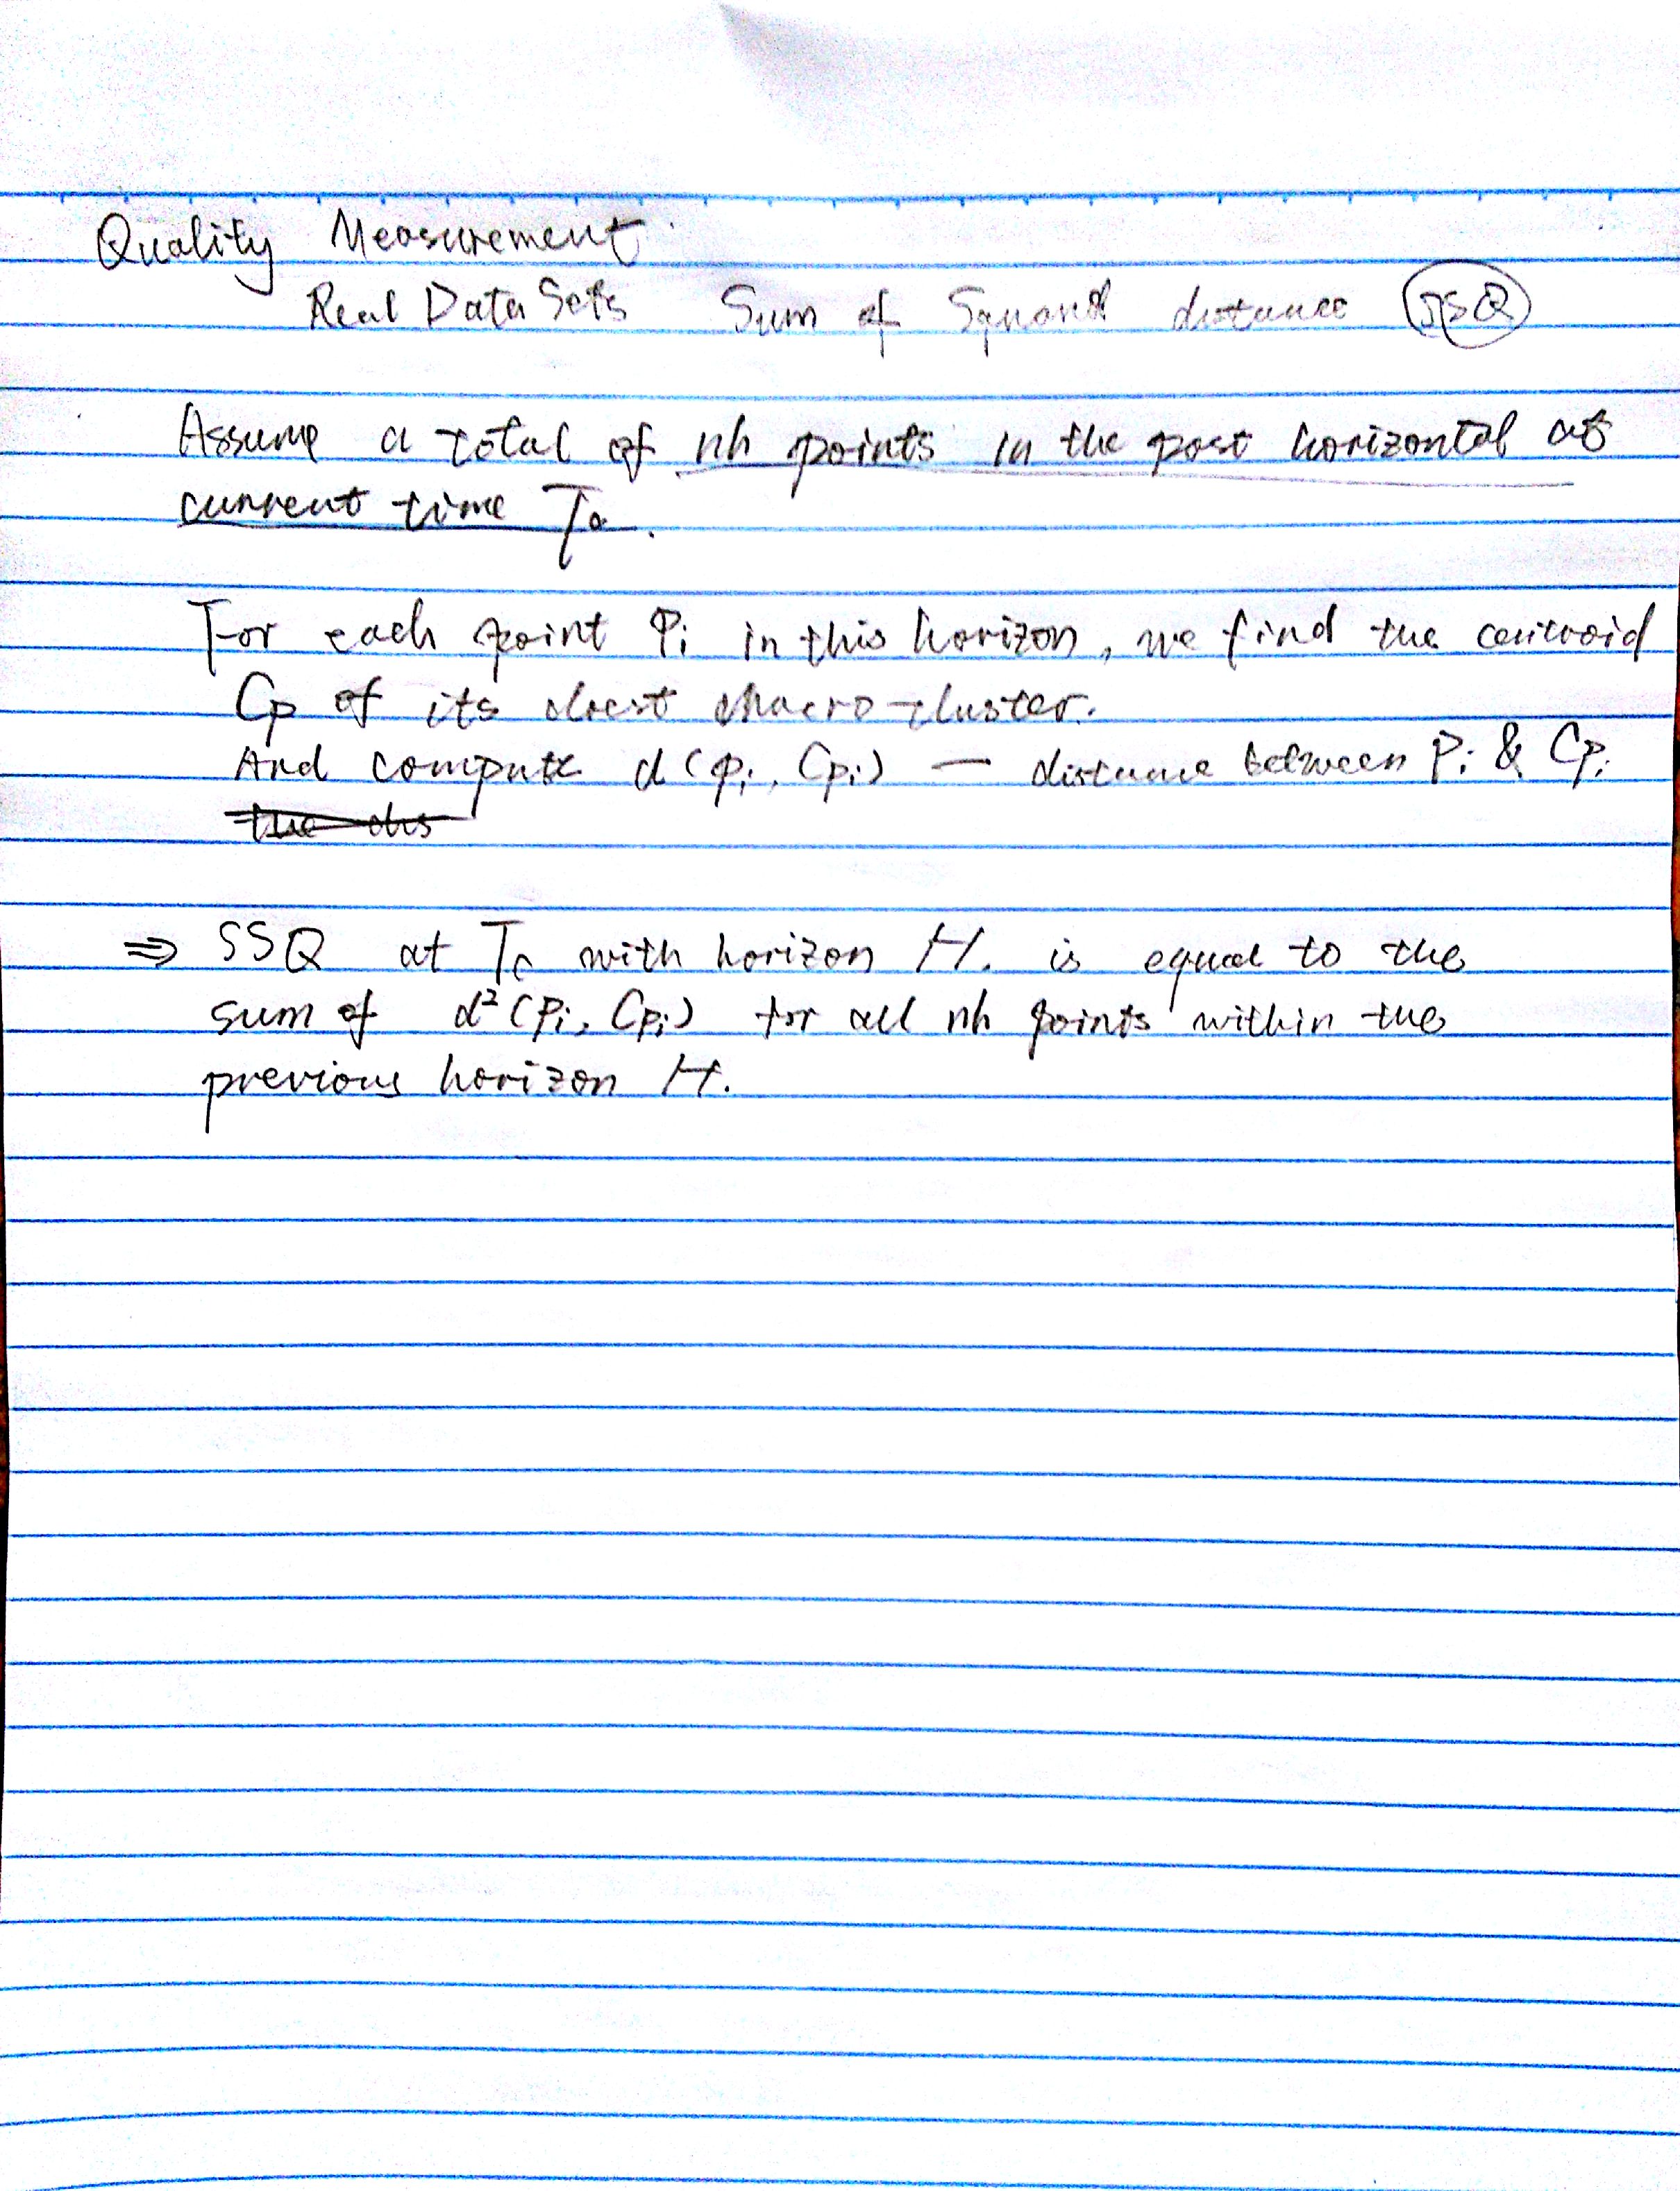 Quality Measurement
Real Data Sets Sum of Squared distance SSQ
Assume a total of nh points in the past horizontal at
current time Tc.
For each point Pi in this horizon, we find the centroid
Cp of its closest macro-cluster.
And compute d(pi, Cpi) — distance between Pi & Cpi
the dis
⇒ SSQ at Tc with horizon H. is equal to the
sum of d²(Pi, Cpi) for all nh points within the
previous horizon H.